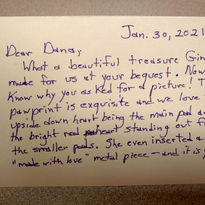 Jan. 30, 2021
Dear Dana,
What a beautiful treasure Gin
made for us at your bequest. Now
Know why you asked for a picture! T
pawprint is exquisite and we love
upside down heart being the main pad a
the bright red heart standing out f
the smaller pads. She even inserted a
"made with love" metal piece—and it is